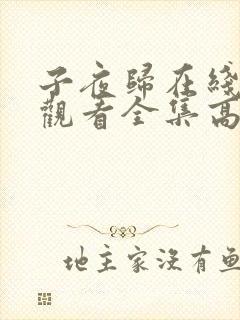 子夜歸在綫
觀看全集高
地主家沒有魚